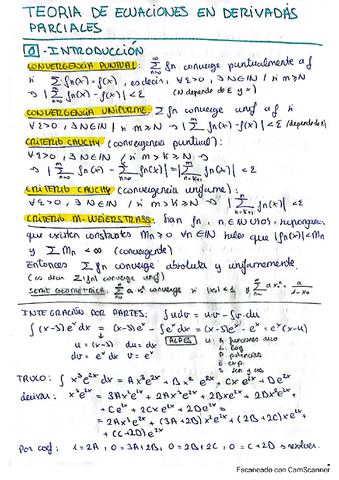 TEORIA DE ECUACIONES EN DERIVADAS
PARCIALES
0 - INTRODUCCIÓN
CONVERGENCIA PUNTUAL: ∞∑n=0 fn converge puntualmente a f
si ∞∑n=0 fn(x) = f(x), es decir, ∀ε>0, ∃N∈ℕ / si m≥N
→ |m∑n=0 fn(x) - f(x)| < ε (N depende de ε y x)
CONVERGENCIA UNIFORME: ∑fn converge unif a f si
∀ε>0, ∃N∈ℕ / si m≥N → |∑ fn(x) - f(x)| < ε (depende ε)
CRITERIO CAUCHY (convergencia puntual):
∀ε>0, ∃N∈ℕ / si m>k≥N →
→ |m∑n=0 fn(x) - k∑n=0 fn(x)| = |m∑n=k+1 fn(x)| < ε
CRITERIO CAUCHY (convergencia uniforme):
∀ε>0, ∃N∈ℕ / si m>k≥N → |m∑k+1 fn(x)| < ε
CRITERIO M-WEIERSTRASS: Sean fn, n∈ℕ∪{0}, supongamos
que existen constantes Mn≥0 ∀n∈ℕ tales que |fn(x)|<Mn
y ∑Mn < ∞ (convergente)
Entonces ∑fn converge absoluta y uniformemente.
(es decir ∑|fn| converge unif)
SERIE GEOMÉTRICA: ∞∑n=0 a·xⁿ converge si |x|<1 y ∑ a xⁿ =
INTEGRACIÓN POR PARTES: ∫udv = u·v - ∫v·du
∫(x-3)eˣdx = (x-3)eˣ - ∫eˣdx = (x-3)eˣ - eˣ = eˣ(x-4)
u = (x-3) du = dx
dv = eˣdx v = eˣ
ALPES
A: funciones arco
L: log
P: potencias
E: exp.
S: sen y cos
TRUCO: ∫x³e²ˣdx = Ax³e²ˣ + Bx²e²ˣ + Cxe²ˣ + De²ˣ
derivar: x³e²ˣ = 3Ax²e²ˣ + 2Ax³e²ˣ + 2Bxe²ˣ + 2Bx²e²ˣ +
+ Ce²ˣ + 2Cxe²ˣ + 2De²ˣ =
= 2Ax³e²ˣ + (3A+2B)x²e²ˣ + (2B+2C)xe²ˣ +
+ (C+2D)e²ˣ
Por coef: 1=2A, 0=3A+2B, 0=2B+2C, 0=C+2D → resolver.
Escaneado con CamScanner